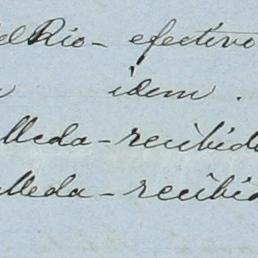 del Rio - efectivo
idem .
lleda - recibido
alleda - recibid